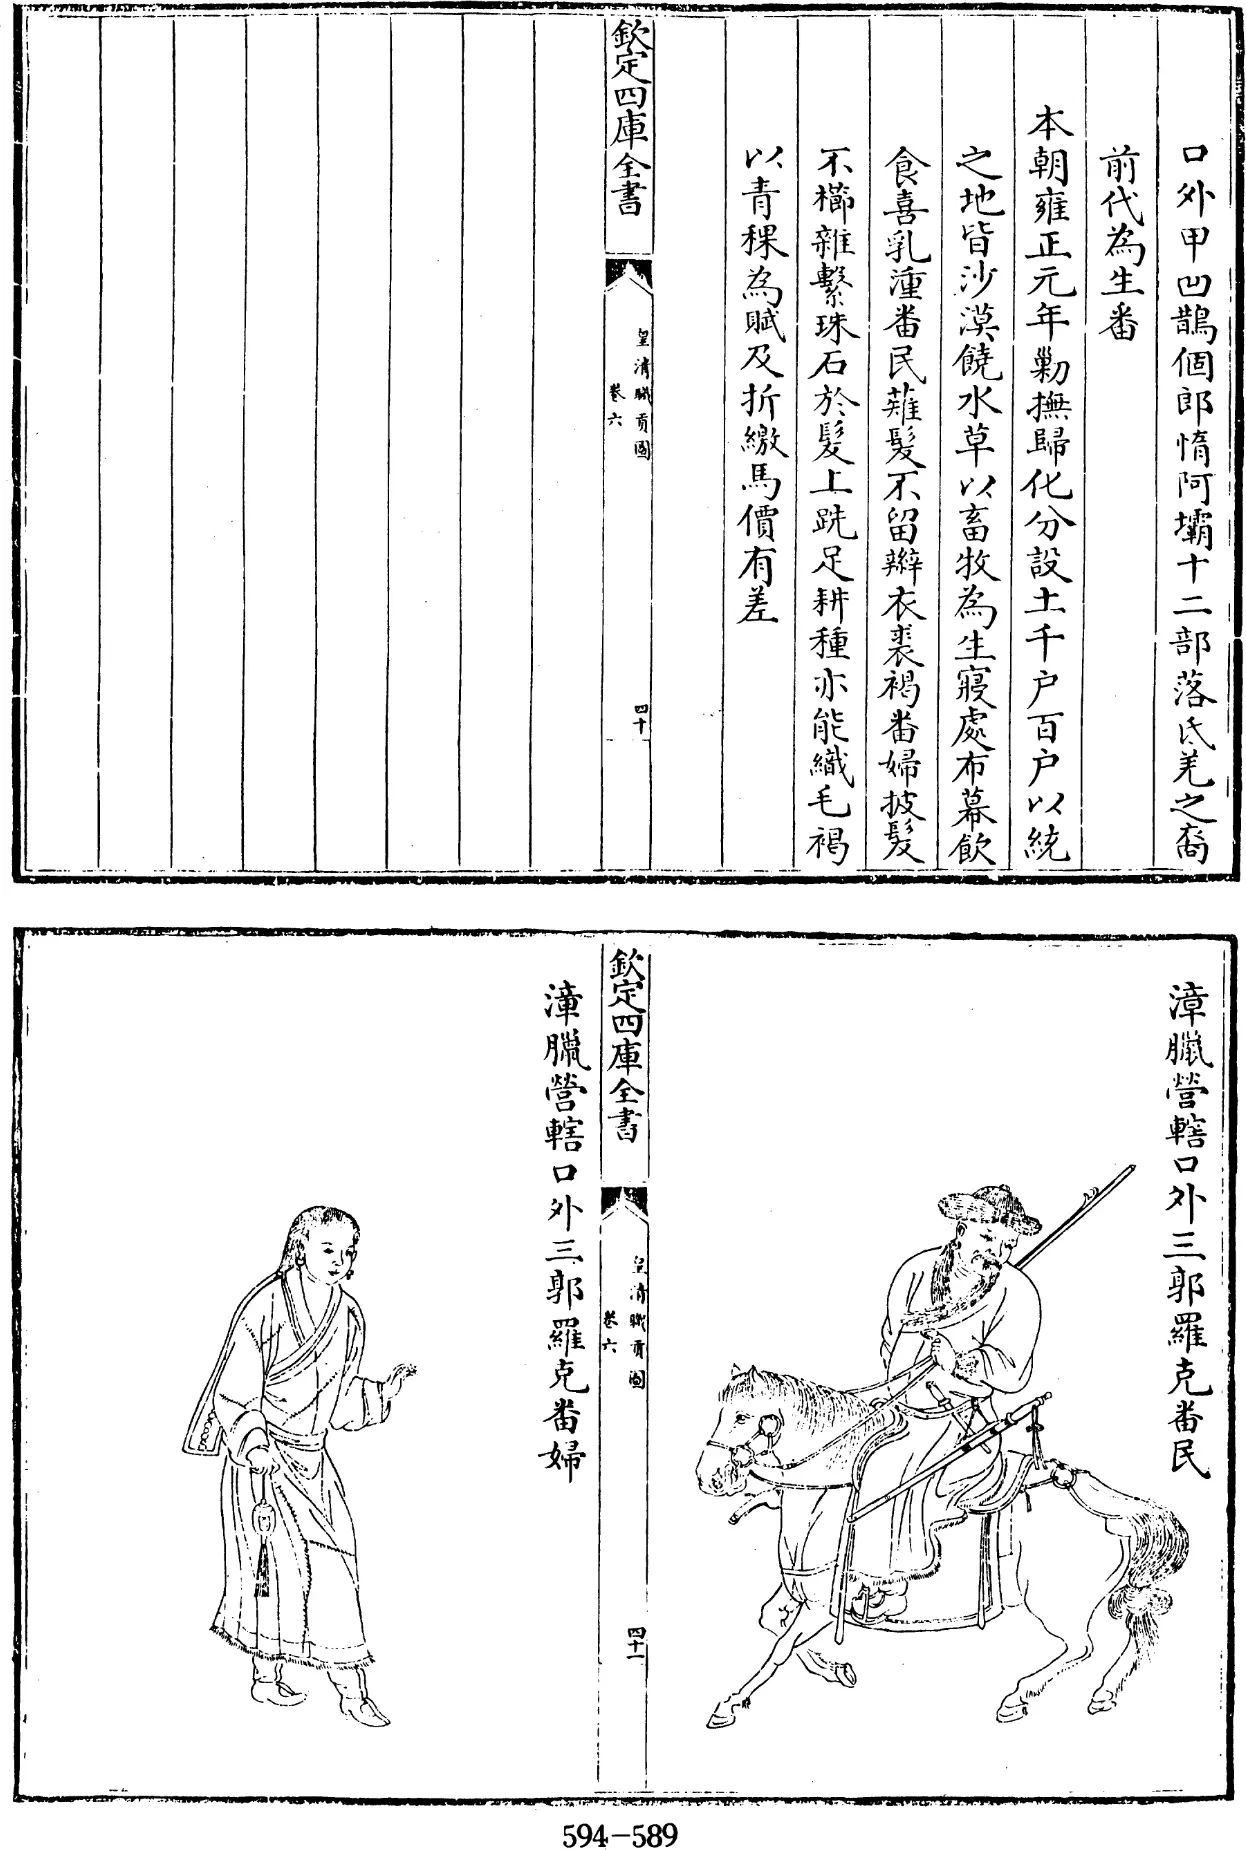 口外甲凹鵲個郎惰阿壩十二部落氐羌之裔
前代為生番
本朝雍正元年勦撫歸化分設土千户百户以統
之地皆沙漠饒水草以畜牧為生寢處布幕飲
食喜乳湩番民薙髮不留辮衣裘褐番婦披髮
不櫛雜繫珠石於髮上跣足耕種亦能織毛褐
以青稞為賦及折繳馬價有差
欽定四庫全書
皇清職貢圖
卷六
四十
漳臘營轄口外三郭羅克番民
欽定四庫全書
皇清職貢圖
卷六
四十一
漳臘營轄口外三郭羅克番婦
594-589